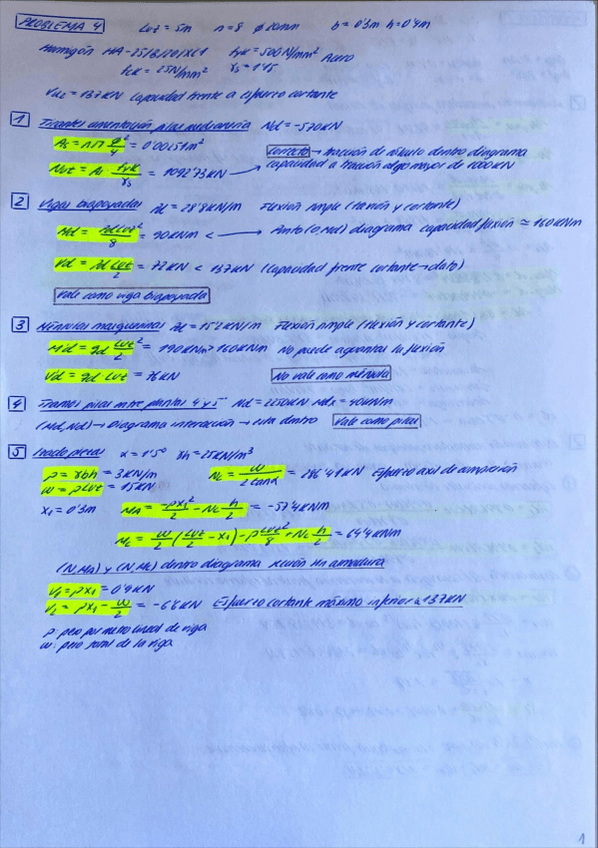 PROBLEMA 4 Luz = 5m n=8 ø20mm b=0'3m h=0'4m
Hormigón HA-25/B/20/XC1 fyk = 500N/mm² Acero
fck = 25N/mm² γs = 1'15
Vu2 = 137KN Capacidad frente a esfuerzo cortante
1 Tirantes cimentación pilar medianería Nd = -570KN
As = nπ ø²/4 = 0'00251m² Correcto → tracción de cálculo dentro diagrama
Nut = As · fyk/γs = 1092'73KN → capacidad a tracción algo mayor de 1000KN
2 Vigas biapoyadas qd = 28'8KN/m Flexión simple (flexión y cortante)
Md = qd Luz²/8 = 90KNm < → Punto (0,Md) diagrama capacidad flexión ≃ 160KNm
Vd = qd Luz/2 = 72KN < 137KN (capacidad frente cortante → dato)
Vale como viga biapoyada
3 Ménsulas marquesinas qd = 15'2KN/m Flexión simple (flexión y cortante)
Md = qd Luz²/2 = 190KNm > 160KNm No puede aguantar la flexión
Vd = qd Luz = 76KN No vale como ménsula
4 Tramos pilar entre plantas 4 y 5 Nd = 2250KN Mdx = 40KNm
(Md,Nd) → Diagrama interacción → esta dentro Vale como pilar
5 Izado piezas α = 15° γh = 25KN/m³
p = γbh = 3KN/m Nc = w/2tanα = Esfuerzo axil de compresión
w = pLuz = 15KN
x1 = 0'3m MA = -px1²/2 - Nc h/2 = -57'4KNm
Mc = w/2 (Luz/2 - x1) - p Luz²/8 + Nc h/2 = 64'4KNm
(N,MA) y (N,Mc) dentro diagrama sección sin armadura
V1 = px1 = 0'9KN
V2 = px1 - w/2 = -6'6KN Esfuerzo cortante máximo inferior a 137KN
p: peso por metro lineal de viga
w: peso total de la viga
1